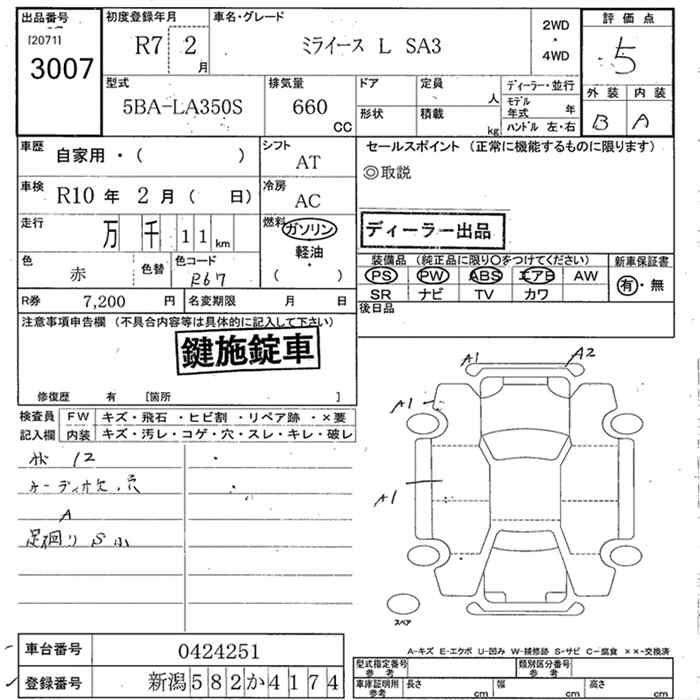 出品番号
[2071]
3007
初度登録年月
R7 2 月
車名・グレード
ミライース L SA3
2WD
・
4WD
評価点
5
外装 内装
B A
型式
5BA-LA350S
排気量
660
CC
ドア
形状
定員
人
積載
kg
ディーラー・並行
モデル年式 年
ハンドル 左・右
車歴
自家用・( )
シフト
AT
車検
R10 年 2 月 ( 日)
冷房
AC
走行
万 千 11 km
燃料
ガソリン
軽油
・
( )
色
赤
色替
色コード
R67
R券 7,200 円 名変期限 月 日
セールスポイント (正常に機能するものに限ります)
◎取説
ディーラー出品
装備品 (純正品に限り○をつけてください)
PS PW ABS エアB AW
SR ナビ TV カワ
新車保証書
有・無
後日品
注意事項申告欄 (不具合内容等は具体的に記入して下さい)
鍵施錠車
修復歴 有 [箇所 ]
検査員 FW キズ・飛石・ヒビ割・リペア跡・×要
記入欄 内装 キズ・汚レ・コゲ・穴・スレ・キレ・破レ
12
オーディオ欠.穴
A
足廻り S小
A1 A2
A1
A1
スペア
A-キズ E-エクボ U-凹み W-補修跡 S-サビ C-腐食 ××-交換済
車台番号 0424251
登録番号 新潟582か4174
型式指定番号
参考
類別区分番号
参考
車庫証明用
参考
長さ cm 幅 cm 高さ cm